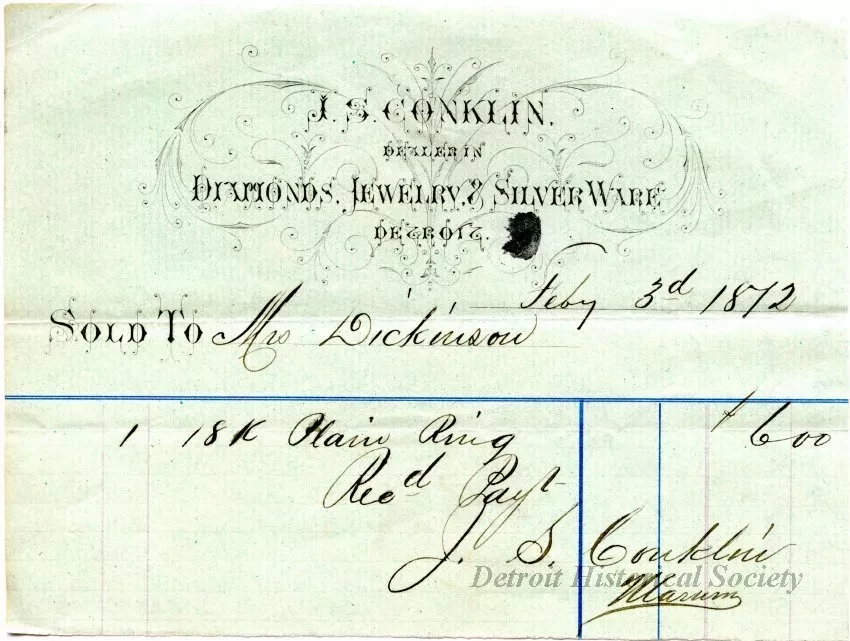 J. S. CONKLIN.
DEALER IN
DIAMONDS, JEWELRY, & SILVER WARE
DETROIT.
Feby 3d 1872
SOLD TO Mrs Dickinson
1 18K Plain Ring $600
Recd Payt
J. S. Conklin
Detroit Historical Society